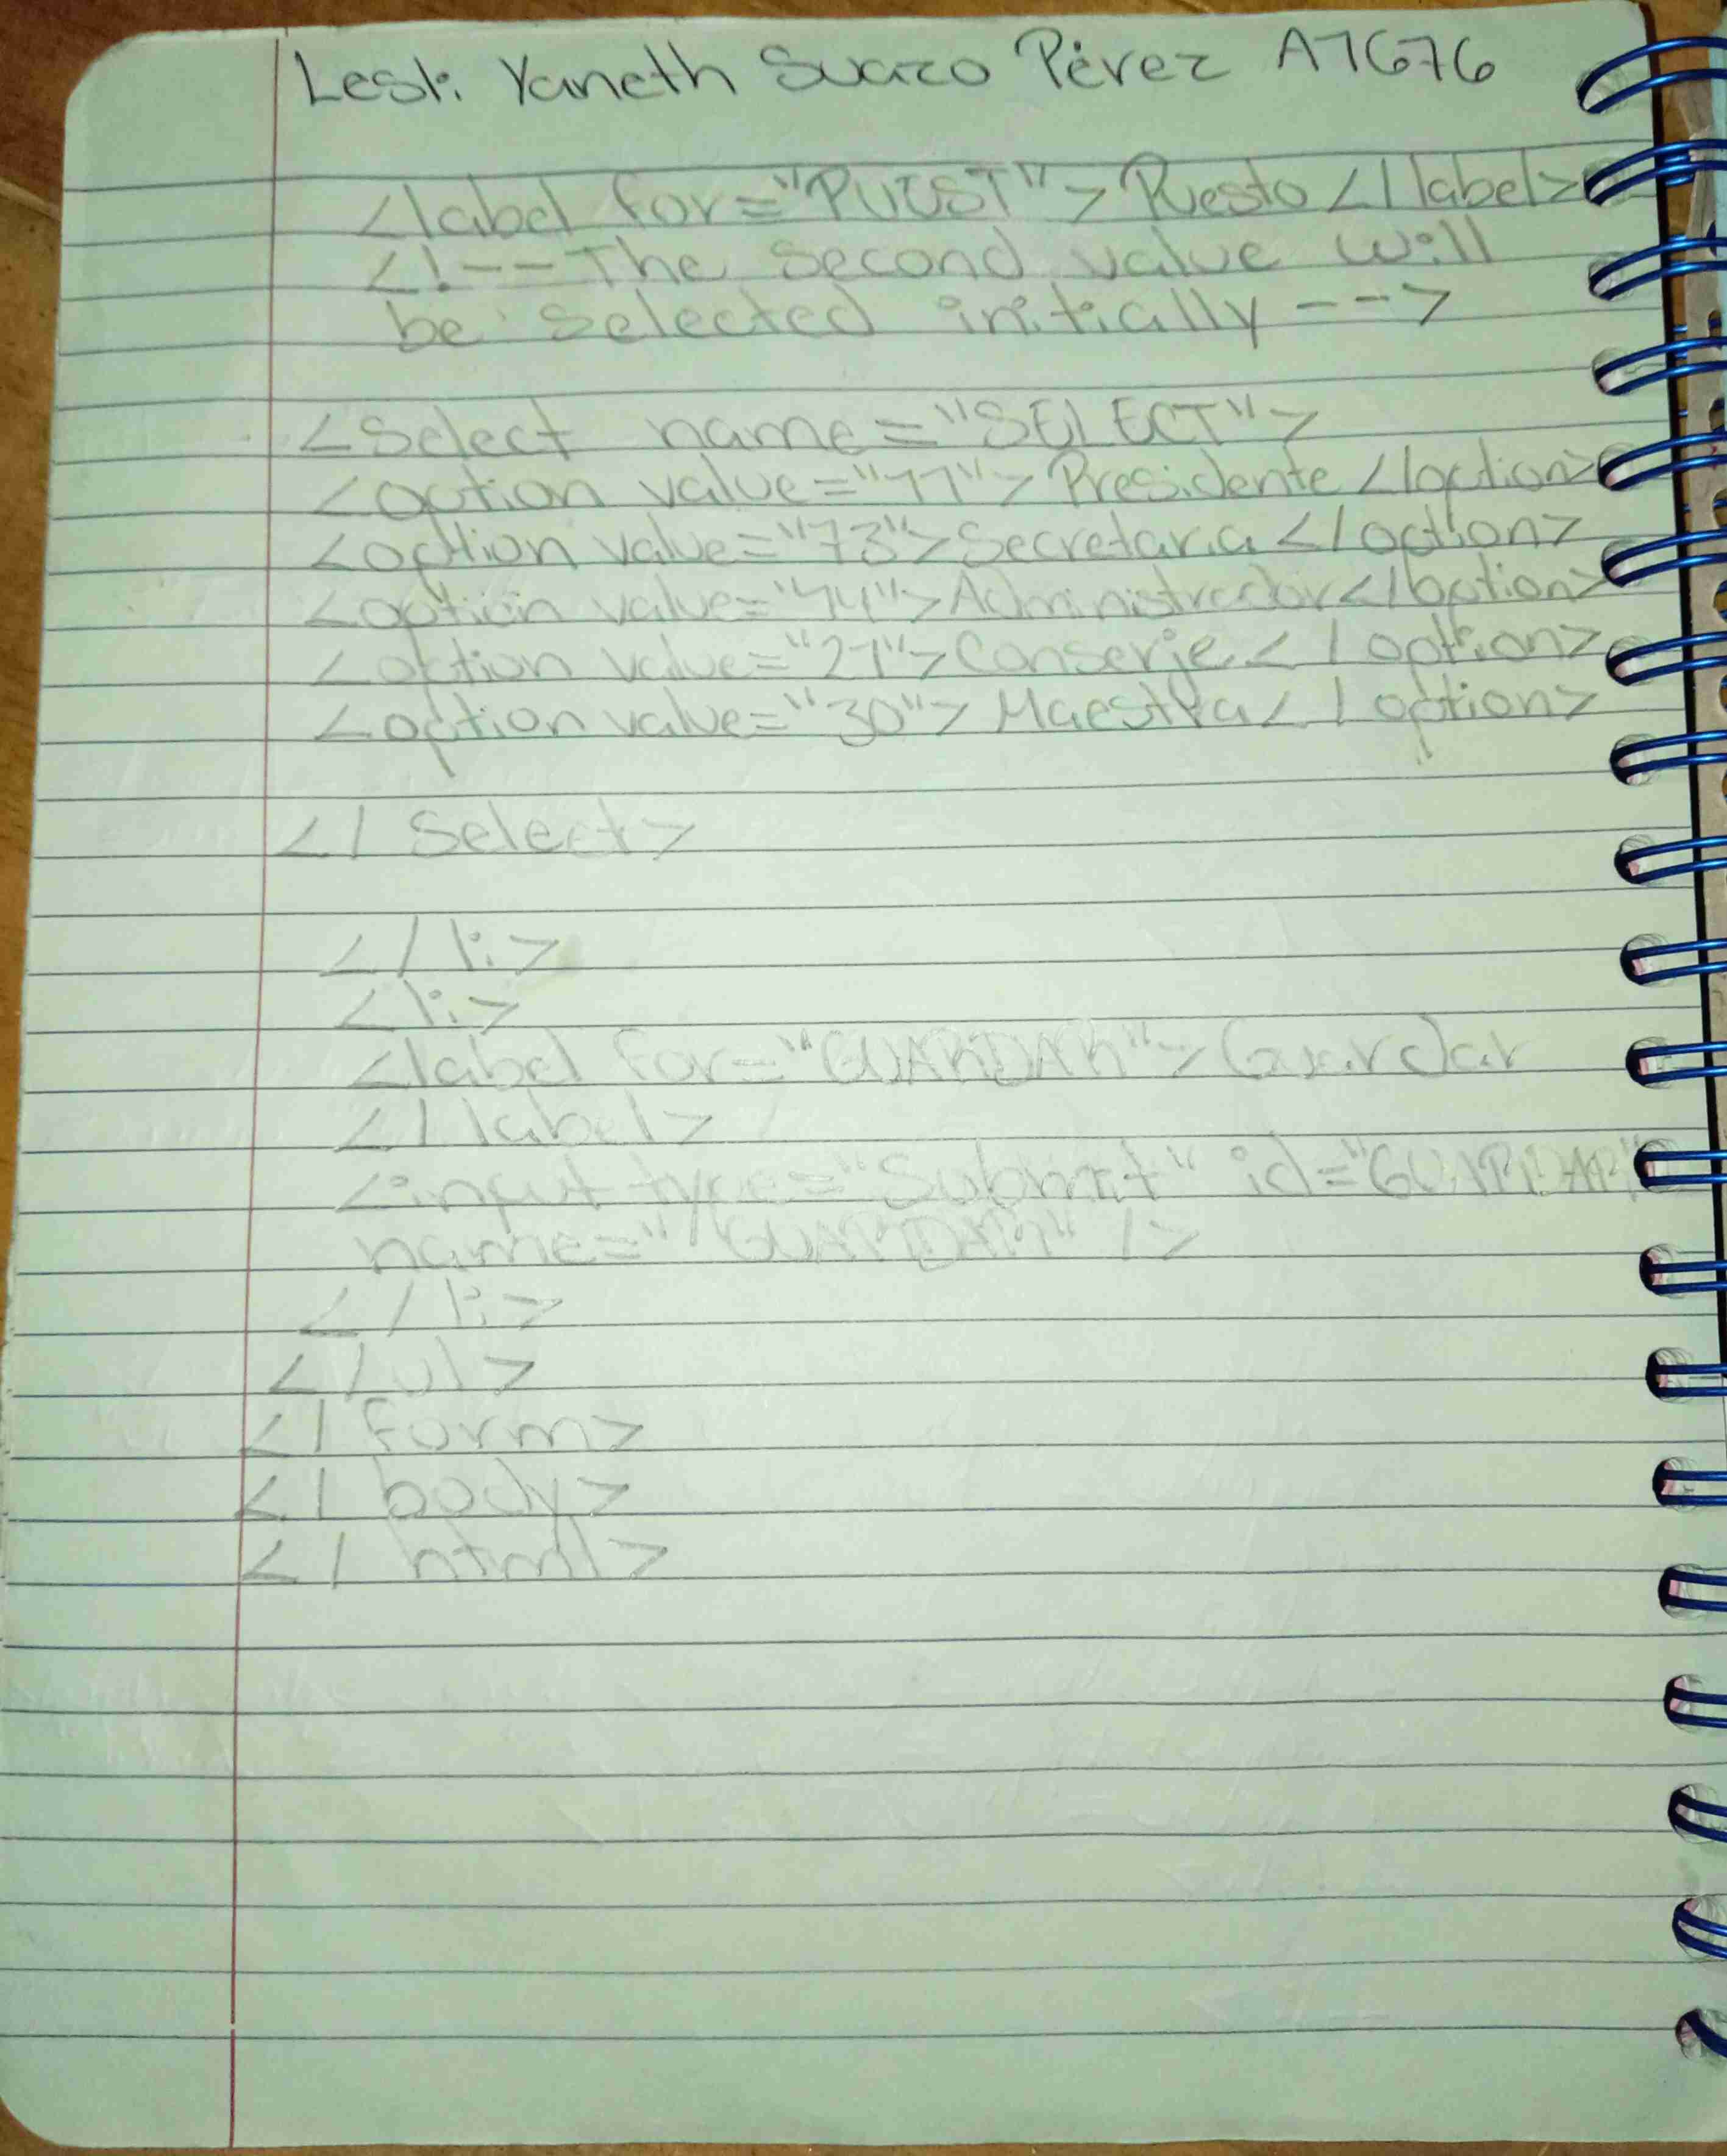 Lesli Yaneth Suazo Pérez A1676
<label for="PUEST"> Puesto </label>
<!-- The second value will
be selected initially -->
<select name="SELECT">
<option value="11"> Presidente </option>
<option value="13"> Secretaria </option>
<option value="44"> Administrador </option>
<option value="21"> Conserje </option>
<option value="30"> Maestra </option>
</ select>
</li>
<li>
<label for="GUARDAR"> Guardar
</label>
<input type="Submit" id="GUARDAR"
name="GUARDAR" />
</li>
</ul>
</form>
</ body>
</ html>